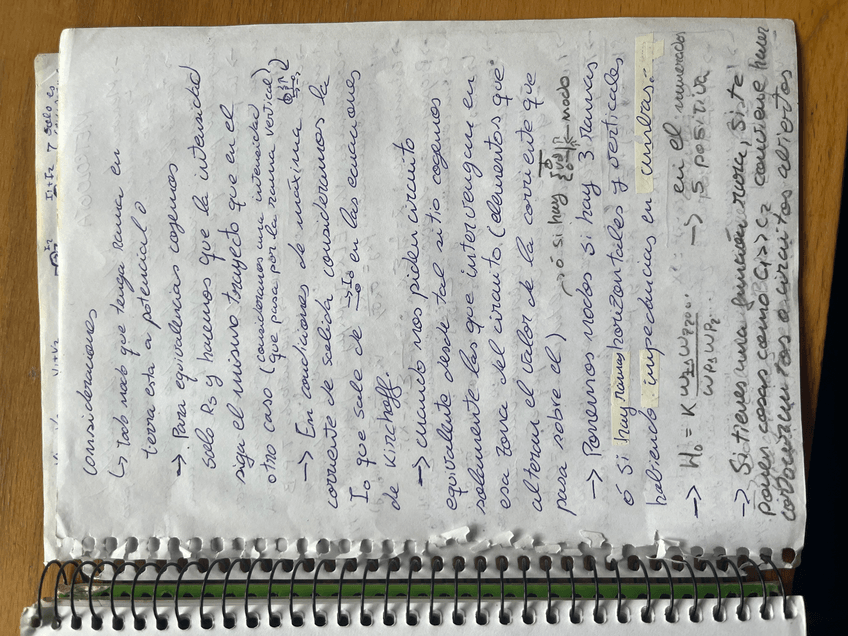 Consideraciones
↳ todo nodo que tenga rama en
tierra esta a potencial 0
→ Para equivalencias cogemos
solo Rs y hacemos que la intensidad
siga el mismo trayecto que en el
otro caso (consideramos una intensidad
que pasa por la rama vertical)
→ En condiciones de máxima
corriente de salida consideramos la
Io que sale de → Io en las ecuaciones
de Kirchoff.
→ cuando nos piden circuito
equivalente desde tal sitio cogemos
solamente las que intervengan en
esa zona del circuito (elementos que
alteran el valor de la corriente que
pasa sobre el) → ó si hay nodo
→ Ponemos nodos si hay 3 ramas
ó si hay ramas horizontales y verticales
habiendo impedancias en ambas.
→ H0 = K Wz1 Wz2... / WP1 WP2... → en el numerador
→ S positiva
→ Si tienes una función rara, si te
pones cosas como C1>>C2 conviene hacer
cortocircuitos o circuitos abiertos
I1+I2 y solo es
V1+V2